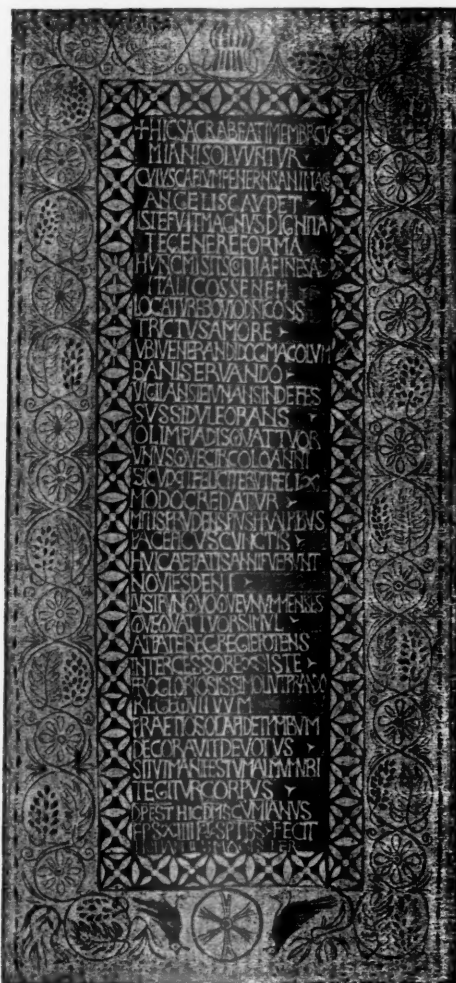 + HIC SACRA BEATI MEMBR CV
MIANI SOLVVNTVR
CVIVS CAELVM PENETRNS ANIMA C
ANGELIS GAVDET
ISTE FVIT MAGNVS DIGNITA
TE GENERE FORMA
HVNC MISIT SCTIA FINES AD
ITALICOS SENEM
LOCATVR EBOVIO DNI CONS
TRICTVS AMORE
VBI VENERANDI DOGMA COLVM
BANI SERVANDO
VIGILANS IEVNANS INDEFES
SVS SIDVLE ORANS
OLIMPIADIS QVATTVOR
VNIVSQVE CIRCOLO ANNI
SIC VIXIT FELICITER VT FELIX
MODO CREDATVR
MITIS PRVDENS PIVS FRATRIBVS
PACEFICVS CVNCTIS
HVIC AETATIS ANNI FVERVNT
NOVIES DENI
LVSTRVM QVOQVE VNVM MENSES
QVE QVATTVOR SIMVL
AT PATER EGREGIE POTENS
INTERCESSOR EXSISTE
PRO GLORIOSISSIMO LIVTPRANDO
REGE QVI TVVM
PRAETIOSO LAPIDE TYMBVM
DECORAVIT DEVOTVS
SIT VT MANIFESTVM ALMVM VBI
TEGITVR CORPVS
DP EST HIC DMS CVMIANVS
EPS XIIII SPTBS FECIT